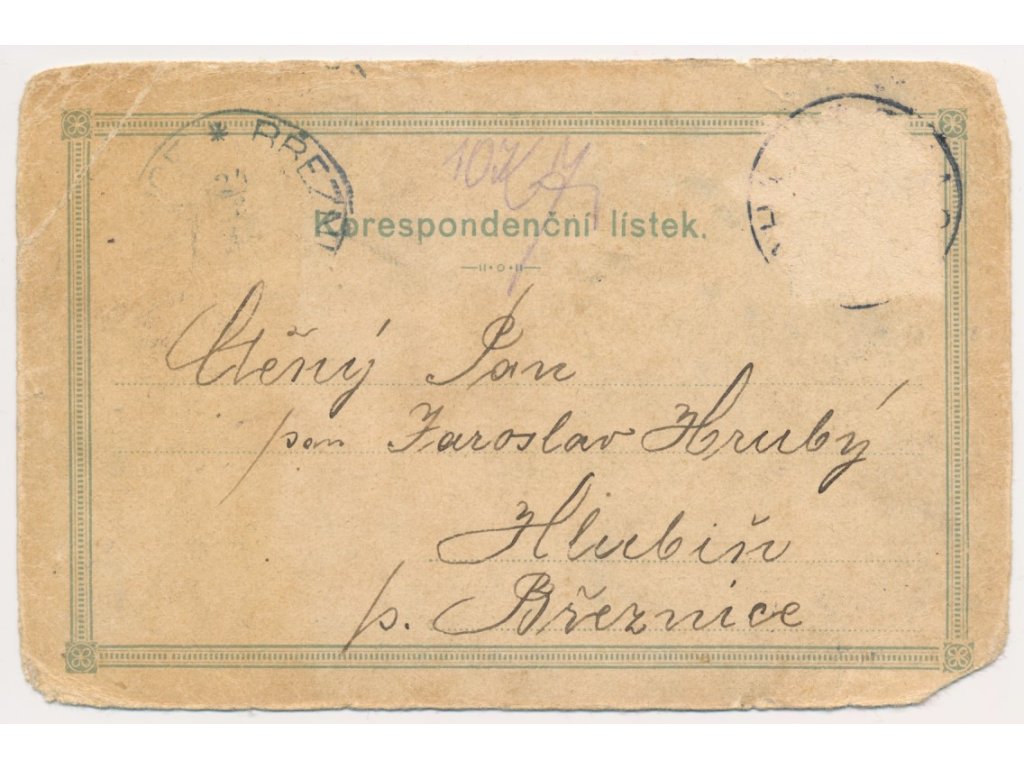 * BŘEZN
Korespondenční lístek.
Ctěný Pan
pan Jaroslav Hrubý
Hlubiň
p. Březnice